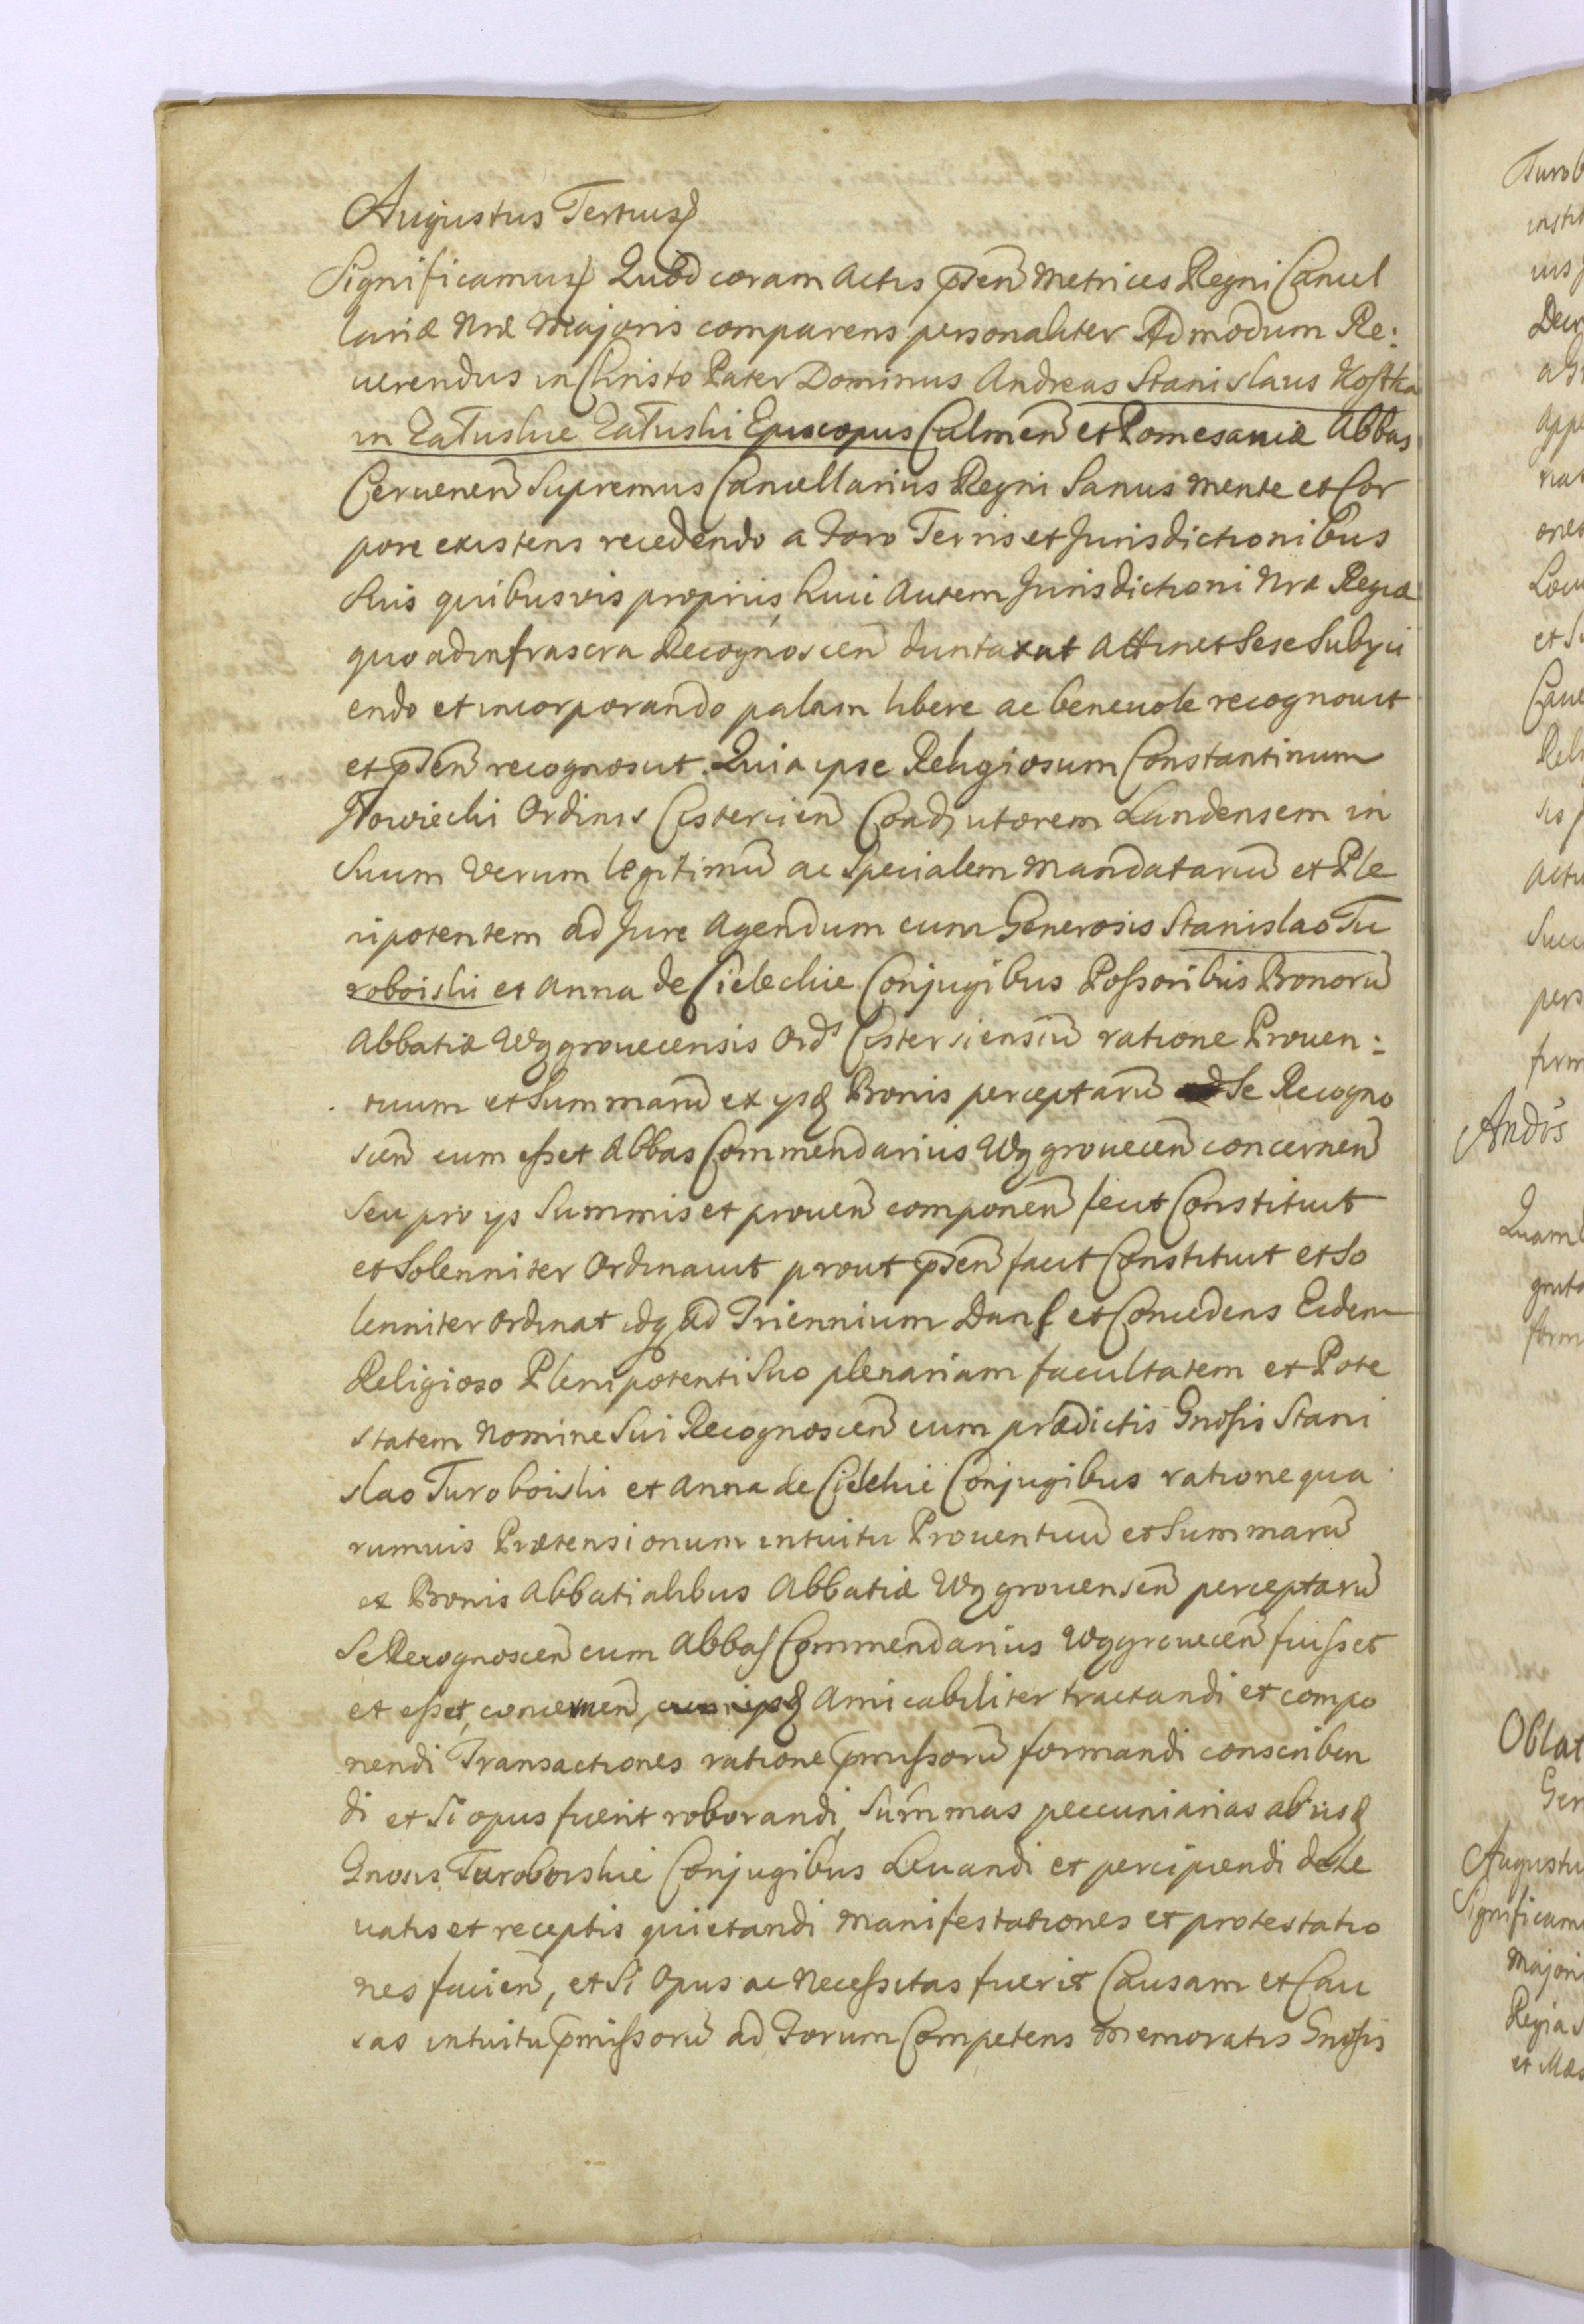 Augustus Tertius
Significamus Quod coram Actis p̃sen̄ Metrices Regni Cancel
lariæ Nræ Majoris comparens personaliter Admodum Re:
uerendus in Christo Pater Dominus Andreas Stanislaus Kostka
in Załuskie Załuski Episcopus Culmen̄ et Pomesaniæ Abbas
Ceruenen̄ Supremus Cancellarius Regni Sanus mente et Cor
pore existens recedendo a Foro Terris et Jurisdictionibus
Suis quibusvis proprijs, huic autem Jurisdictioni Nræ Regiæ
quo ad infrascra Recognoscen̄ duntaxat attinet Sese Subjici
endo et incorporando palam libere ac beneuole recognouit
et p̃sen̄ recognoscit. Quia ipse Religiosum Constantinum
Iłowiecki Ordinis Cistercien̄ Coadjutorem Landensem in
Suum Verum legitimū ac Specialem Mandatariū et Ple
nipotentem ad Jure Agendum cum Generosis Stanislao Tu
roboiski et Anna de Cielechie Conjugibus Possoribus Bonorū
Abbatiæ Wągrouecensis Ords Cisterciensiū ratione Prouen:
tuum et Summarū ex ijsq Bonis perceptarū Se Recogno
scen̄ cum esset Abbas Commendarius Wągrouecen̄ concernen̄
Seu pro ijs Summis et prouen̄ componen̄ fecit Constituit
et Solenniter Ordinauit prout p̃sen̄ facit Constituit et So
lenniter ordinat idq ad Triennium Dans et Concedens Eidem
Religioso Plenipotenti Suo plenariam facultatem et Pote
statem Nomine Sui Recognoscen̄ cum prædictis Gnosis Stani
slao Turoboiski et Anna de Cielechie Conjugibus ratione qua
rumuis Prætensionum intuitu Prouentuū et Summarū
ex Bonis Abbatialibus Abbatiæ Wągrouensen̄ perceptarū
Se Recognoscen̄ cum Abbas Commendarius Wągrouecen̄ fuisset
et esset, concernen̄, amicabiliter tractandi et compo
nendi Transactiones ratione p̃missorū formandi conscriben
di et Si opus fuerit roborandi, Summas peccuniarias ab iisq
Gnosis Turoboiskie Conjugibus Leuandi et percipiendi dele
uatis et receptis quietandi Manifestationes et protestatio
nes facien̄, et Si Opus ac Necessitas fuerit Causam et Cau
sas intuitu p̃missorū ad Forum Competens memoratis Gnosis